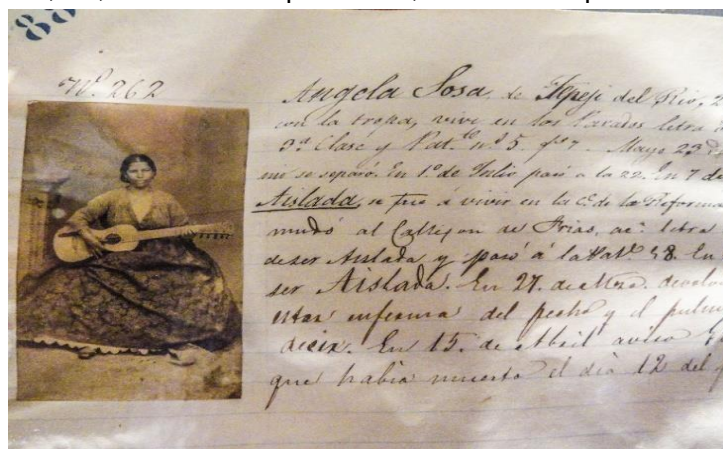 88
Nº 262
Angela Sosa, de Tepeji del Rio, 2
con la tropa, vive en los Parados letra
3ª Clase y Pat. nº 5. Mayo 23
mi se separó. En 1º de Julio pasó a la 22. En 7 de
Aislada, se fué á vivir en la Cª de la Reforma
mudó al Callejon de Frias, acª letra
deser Aislada y pasó á la Patª 58. En
ser Aislada. En 27. de devolv
estar enferma del pecho y el pulm
decir. En 15. de Abril aviso
que habia muerto el dia 12 del